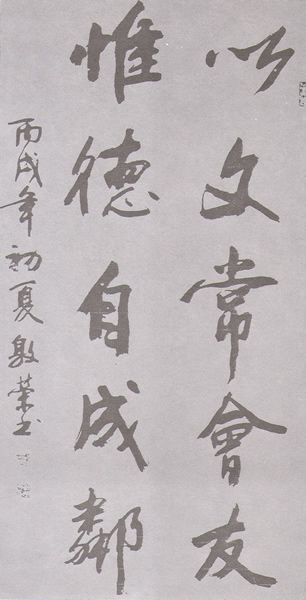 以文常會友
惟德自成鄰
丙戌年初夏敬榮书